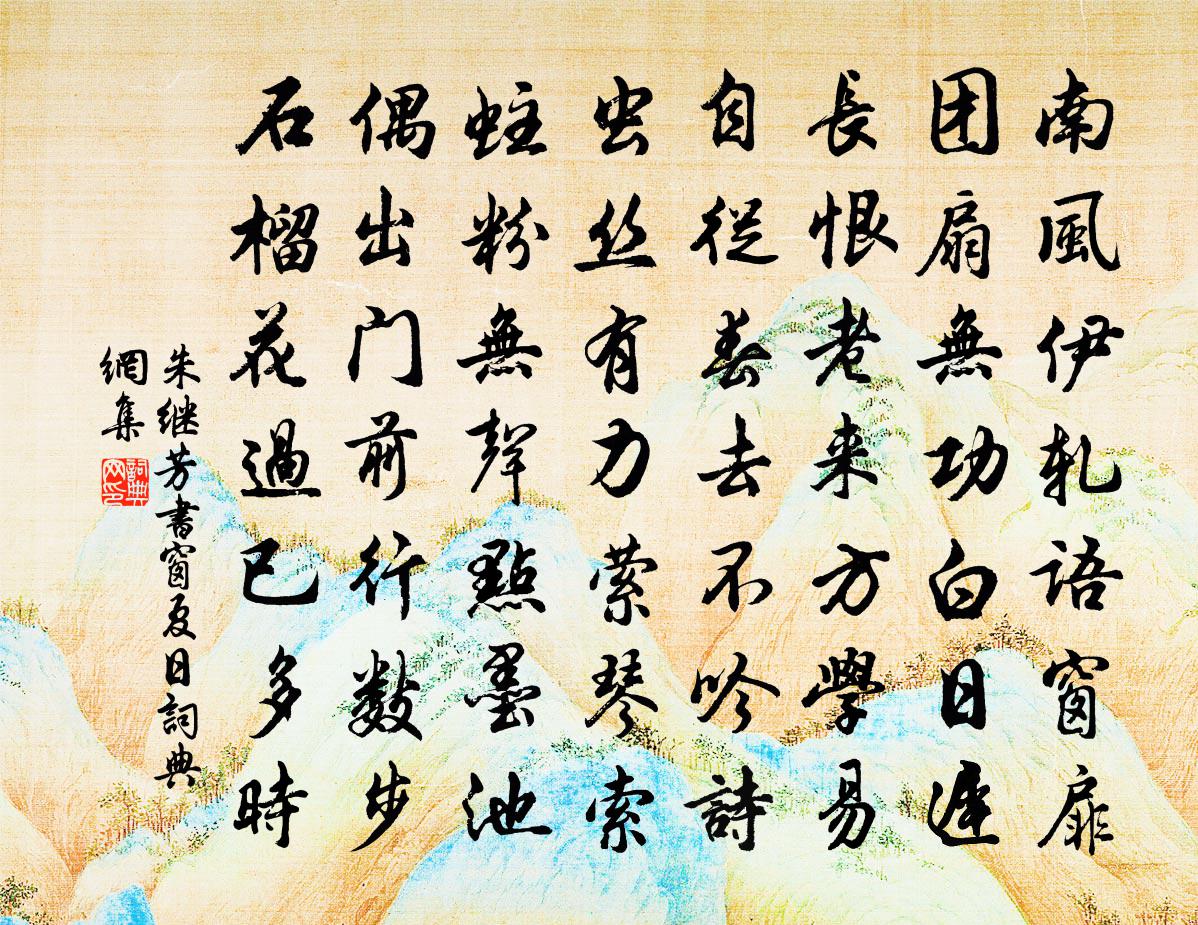 南風伊軋語窗扉
团扇無功白日遲
長恨老来方學易
自從春去不吟詩
虫丝有力萦琴索
蛀粉無聲點墨池
偶出门前行数步
石榴花過已多時
朱继芳書窗夏日詞典
網集
詞典
网印